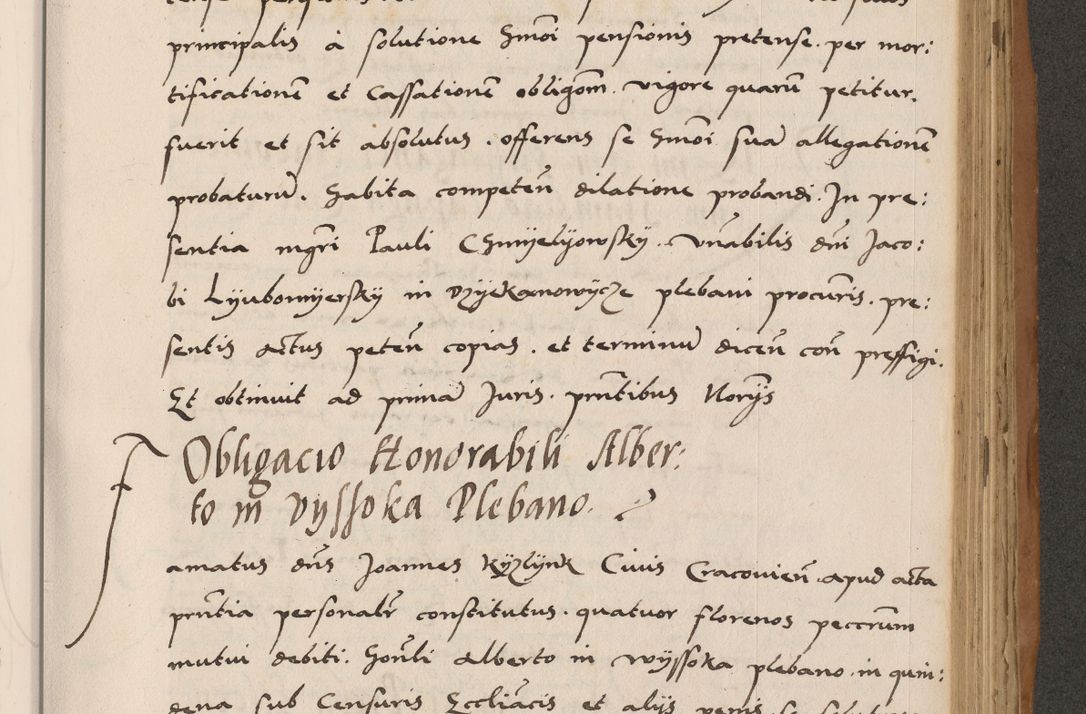 principalis à solutione Hmōi pensionis pretense. per mor:
tificationē et Cassationē obligōm. vigore quarū petitur.
fuerit et sit absolutus. offerens se Hmōi suā allegationē
probaturū. Habita competeñ dilatione probandi. In pre:
sentia mgr̄i Pauli Chmyelyowsky. Vn̄abilis dn̄i Jaco:
bi Lyubomyersky in Dzyekanowycze plebani procur̄is. pre:
sentis actus peteñ copias. et terminū diceñ coñ preffigi.
Et obtinuit ad primā Juris. prn̄tibus Norijs
Obligacio Honorabili Alber:
to in vyssoka Plebano.
amatus dn̄s Joannes Kyzlynk Civis Cracovieñ. apud acta
prn̄tia personalr̄ constitutus. quatuor florenos peccrūm
mutui debiti. Hon̄li Alberto in wyssoka plebano. in quin:
dena sub Censuris Eccliācis et alijs penis se